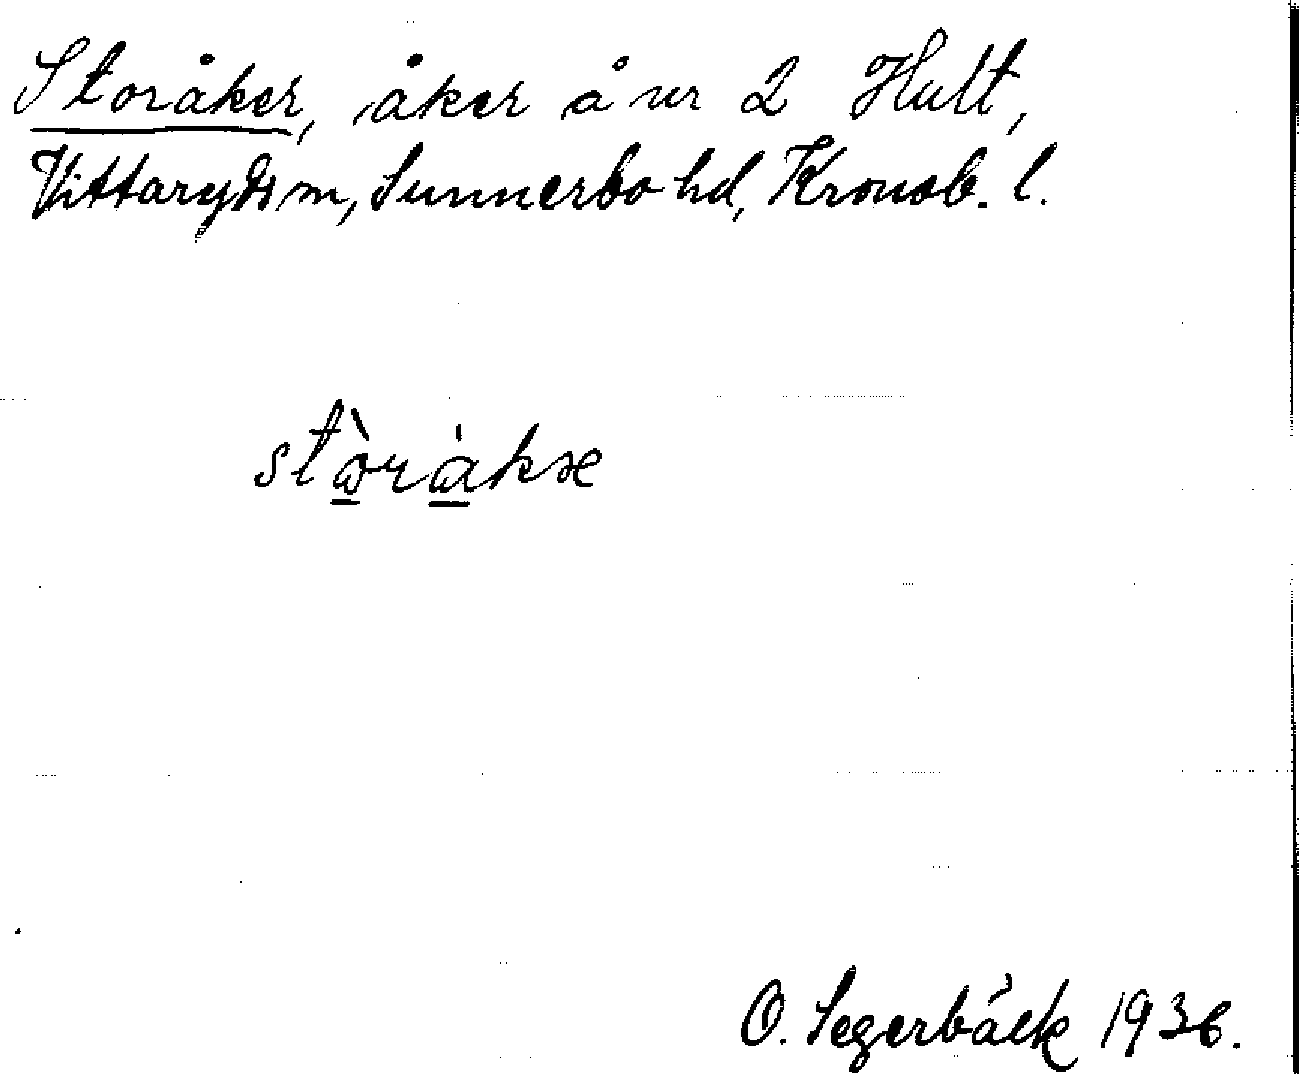 Storåker, åker å nr 2 Hult,
Vittaryds sn, Sunnerbo hd, Kronob. l.
O. Segerbäck 1936.